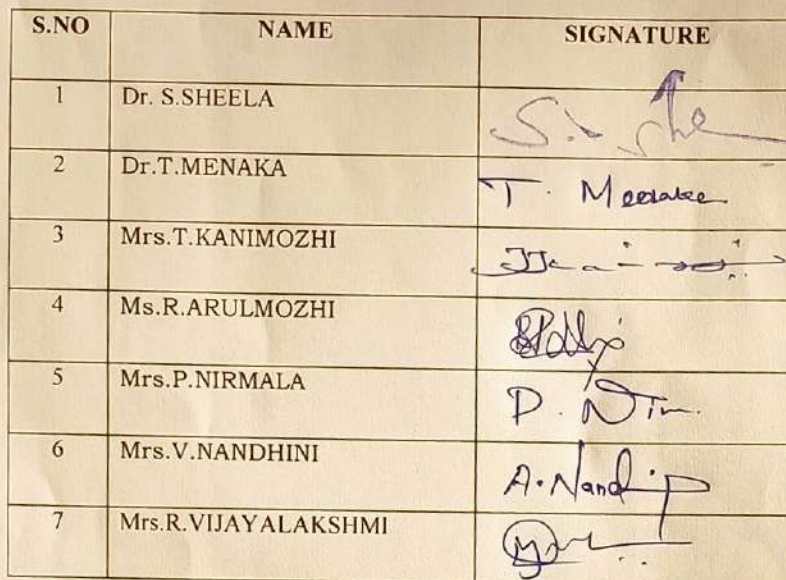 S.NO NAME SIGNATURE
1 Dr. S.SHEELA
2 Dr.T.MENAKA T. Menaka
3 Mrs.T.KANIMOZHI
4 Ms.R.ARULMOZHI
5 Mrs.P.NIRMALA P. Nir
6 Mrs.V.NANDHINI A.Nandhi
7 Mrs.R.VIJAYALAKSHMI